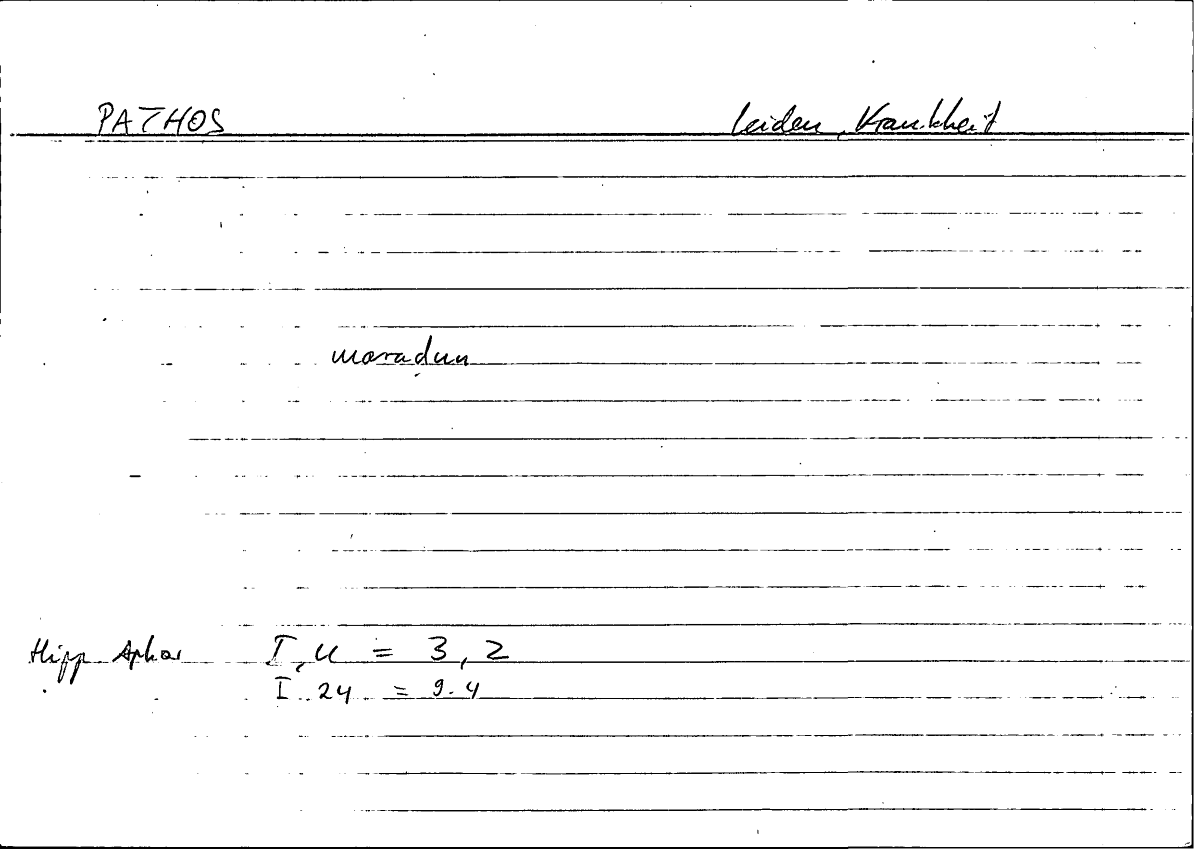 PATHOS Leiden, Krankheit
maraḍun
Hipp Aphor I, 4 = 3, 2
I. 24 = 9. 4